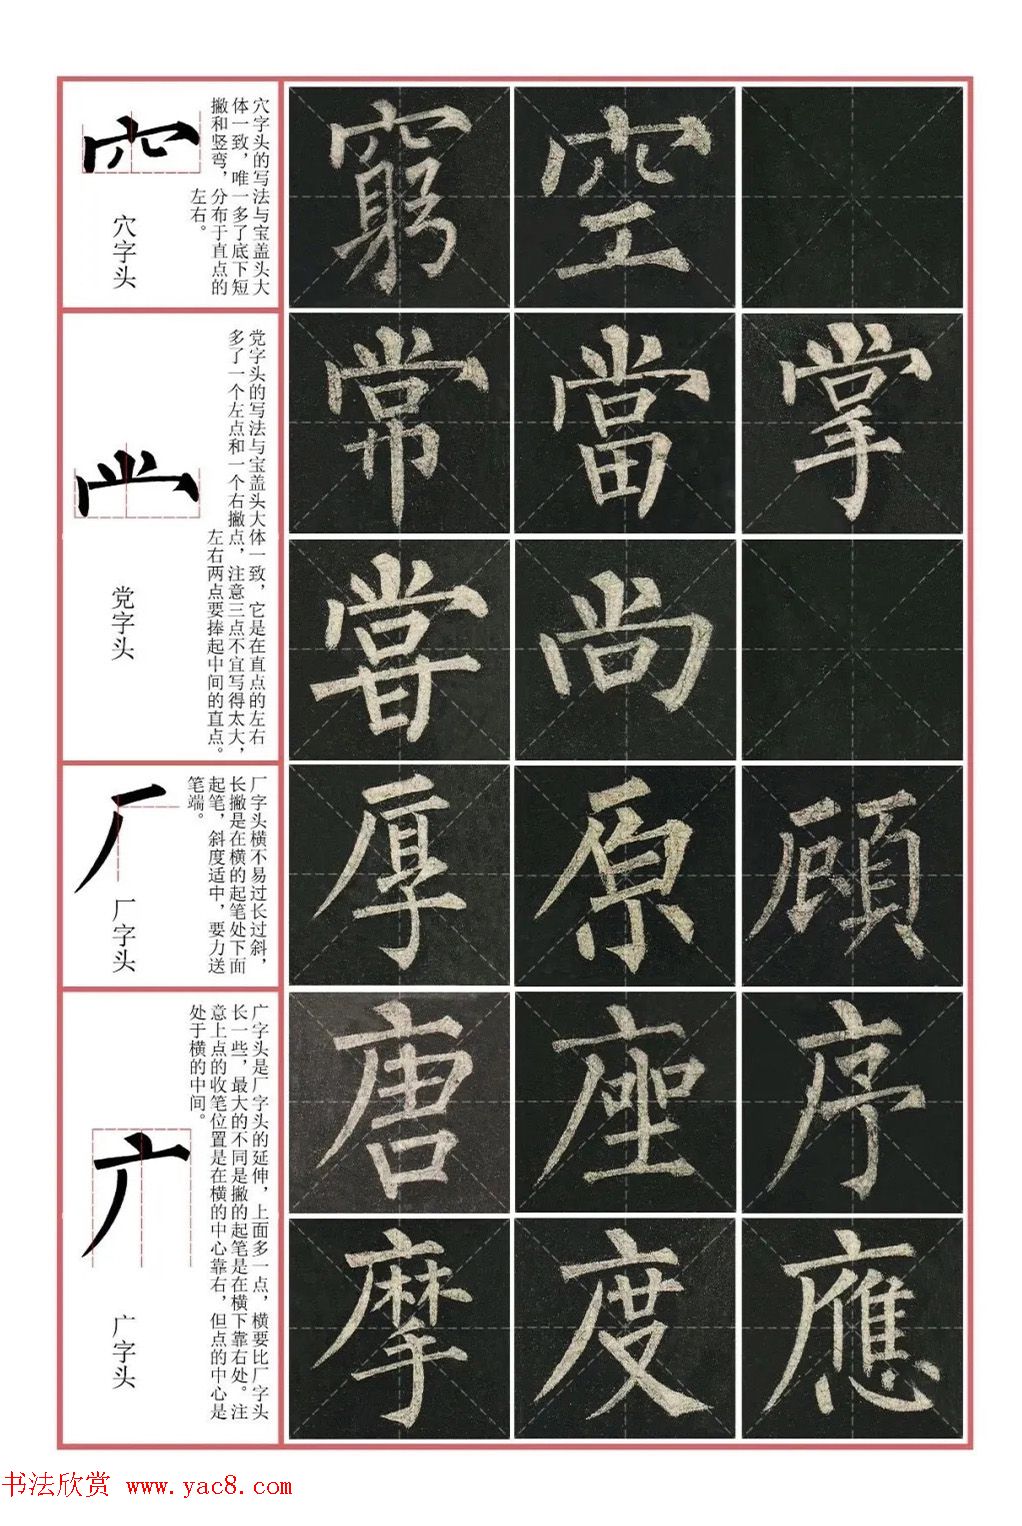 穴字头的写法与宝盖头大
体一致，唯一多了底下短
撇和竖弯，分布于直点的
左右。
穴字头
窮 空
党字头的写法与宝盖头大体一致，它是在直点的左右
多了一个左点和一个右撇点，注意三点不宜写得太大，
左右两点要捧起中间的直点。
党字头
常 當 掌
嘗 尚
厂字头横不易过长过斜，
长撇是在横的起笔处下面
起笔，斜度适中，要力送
笔端。
厂字头
厚 原 顾
广字头是厂字头的延伸，上面多一点，横要比厂字头
长一些，最大的不同是撇的起笔是在横下靠右处。注
意上点的收笔位置是在横的中心靠右，但点的中心是
处于横的中间。
广字头
唐 座 序
摩 度 應
书法欣赏 www.yac8.com